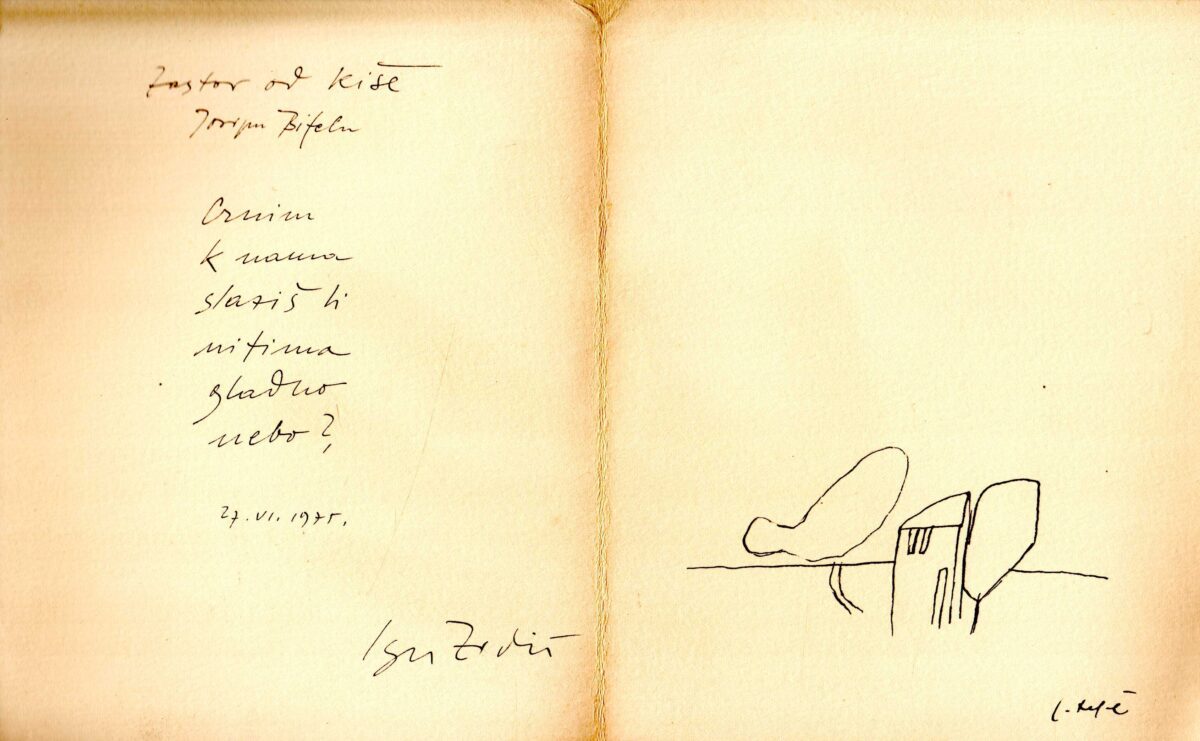 Zastor od kiše
Josipu Bifelu
Crnim
k nama
slaziš li
nitima
gladno
nebo?
27.VI.1975.
Igor Zidić